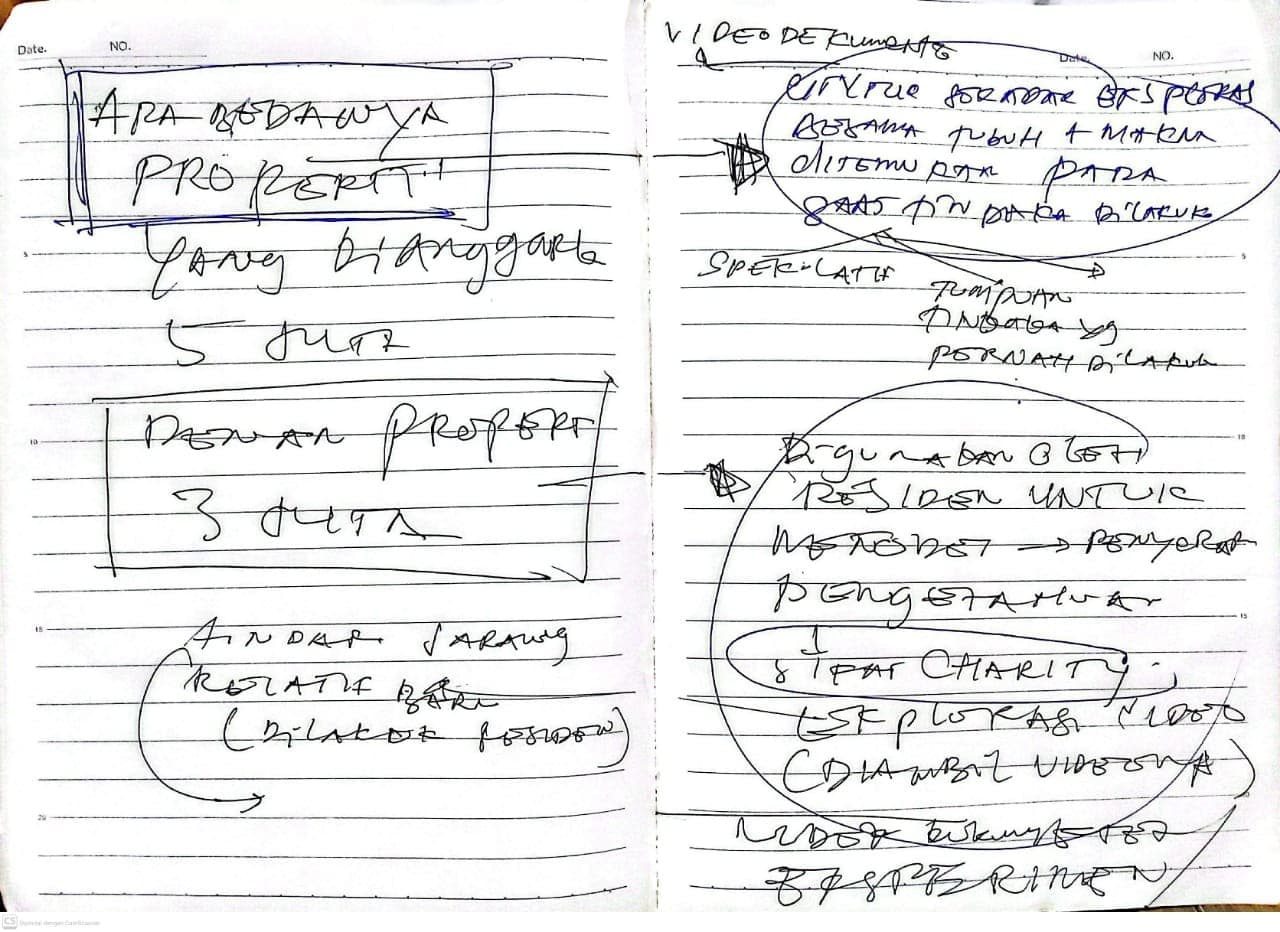 Date. NO.
APA BEDANYA
PROPERTI
YANG DIANGGARK
5 JUTA
DENGAN PROPERT
3 JUTA
TINDAK JARANG
RELATIF BARU
(DILAKUK RESIDEN)
VIDEO DEKUMENTE
Date. NO.
UNTUK SEKADAR EKSPLORAS
BERSAMA TUBUH + MAKNA
DITEMUKAN PADA
SAAT TINDAKA DILAKUK
SPEKULATIF
TUMPUAN
TINDAKA YG
PERNAH DILAKUK
DIGUNAKAN OLEH
RESIDEN UNTUK
→ PENYERAP
PENGETAHUAN
SIFAT CHARITY
EKSPLORASI VIDEO
(DIAMBIL VIDEONYA)
VIDEO
EKSPERIMEN
CS Dipindai dengan CamScanner